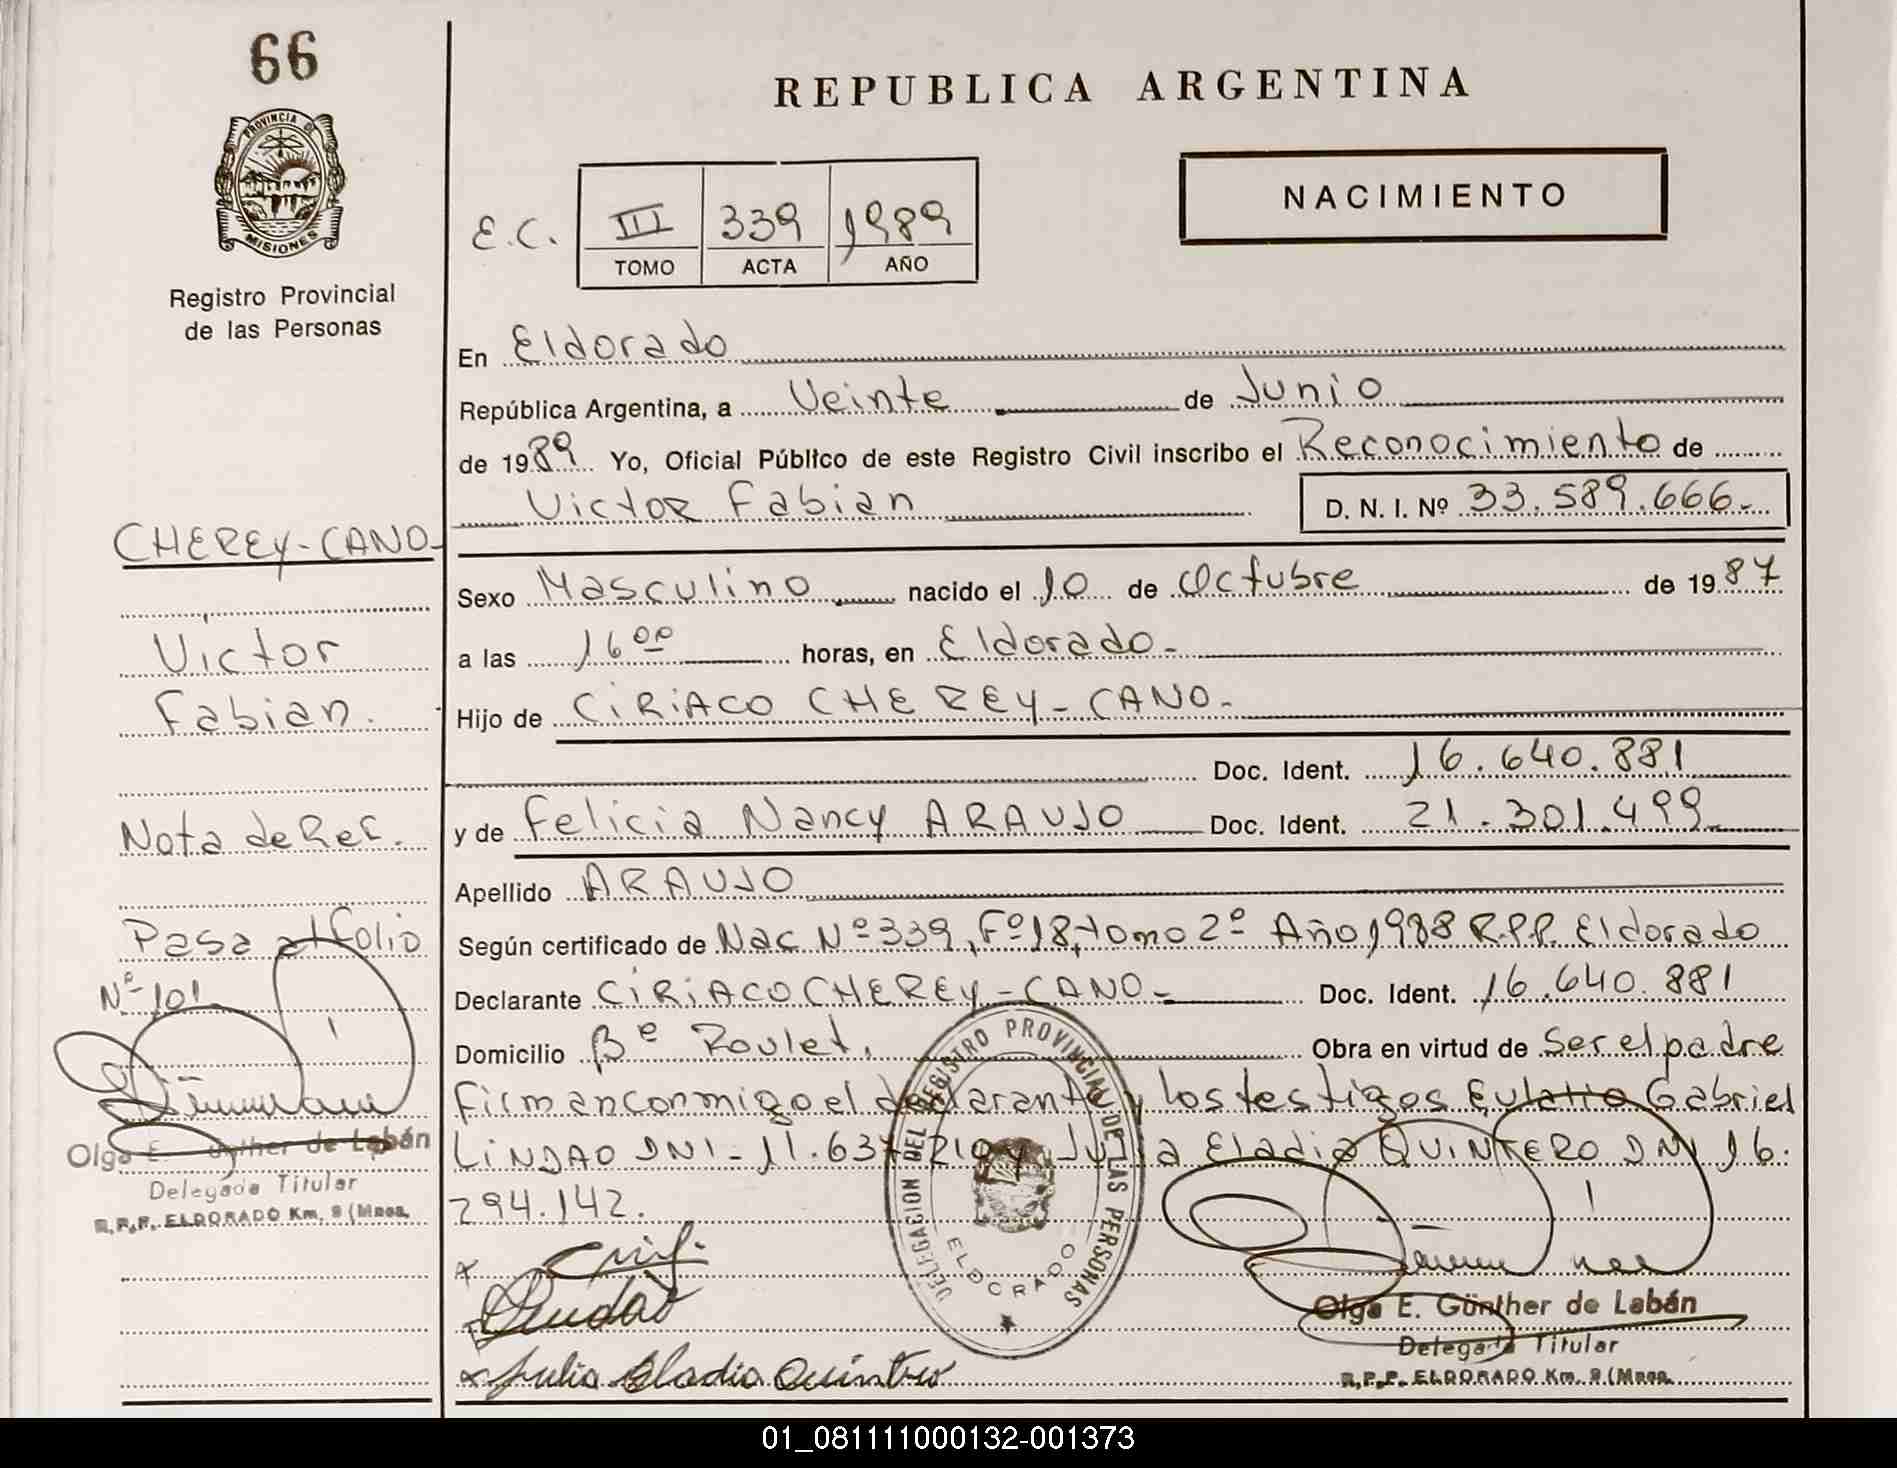 66
PROVINCIA DE
MISIONES
Registro Provincial
de las Personas
REPUBLICA ARGENTINA
NACIMIENTO
E.C. III 339 1989
TOMO ACTA AÑO
En Eldorado
República Argentina, a Veinte de Junio
de 1989 Yo, Oficial Público de este Registro Civil inscribo el Reconocimiento de
Victor Fabian D. N. I. Nº 33.589.666.-
CHEREY-CANO-
Victor
Fabian.
Sexo Masculino nacido el 10 de Octubre de 1987
a las 16 00 horas, en Eldorado-
Hijo de CIRIACO CHEREY-CANO-
Doc. Ident. 16.640.881
y de Felicia Nancy ARAUJO Doc. Ident. 21.301.499
Apellido ARAUJO
Según certificado de Nac Nº 339, Fº 18, tomo 2º Año 1988 R.P.P. Eldorado
Declarante CIRIACO CHEREY-CANO- Doc. Ident. 16.640.881
Domicilio Bº Roulet. Obra en virtud de ser el padre
Firman conmigo el declarante y los testigos Eulalio Gabriel
LINDAO DNI-11.637.210 y Julia Eladia QUINTERO DNI 16.
294.142.
Nota de Ref.
Pasa al folio
Nº 101
Olga E. Günther de Labán
Delegada Titular
R.P.P. ELDORADO Km. 9 (Mnes.
DELEGACION DEL REGISTRO PROVINCIAL DE LAS PERSONAS
ELDORADO
Julia Eladia Quintero
Olga E. Günther de Labán
Delegada Titular
R.P.P. ELDORADO Km. 9 (Mnes.
01_081111000132-001373